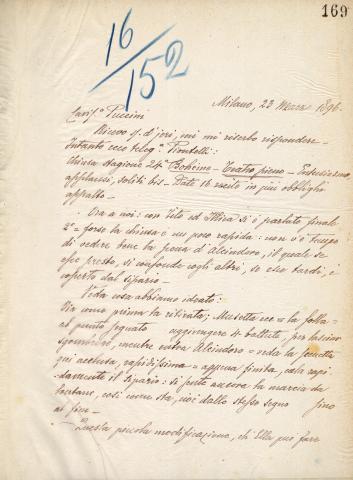 169
16/152
Milano, 23 Marzo 1896.
Car.º Puccini
Ricevo g. d'jeri, mi riserbo rispondere —
Intanto ecco teleg.ª Piontelli:
Chiusa stagione 24ª Bohème — Teatro pieno — Entusiasmo
applausi, soliti bis — Date 16 recite in più obbligho
appalto —
Ora a noi: con Tito ed Illica si è parlato finale
2º = forse la chiusa è un poco rapida: non v'è tempo
di vedere bene la scena d'Alcindoro, il quale se
esce presto, si confonde cogli altri, se esce tardi, è
coperto dal sipario —
Veda cosa abbiamo ideato:
Via come prima la ritirata; Musetta ecc = la folla =
al punto segnato aggiungere 4 battute, per lasciar
sgomb mentre entra Alcindoro = nda la scenetta
qui acclusa, rapidissima = appena finita, cala rapi-
damente il sipario: si sente ancora la marcia da
lontano, così come sta, noi dallo stesso segno fino
al fin —
Questa piccola modificazione, ch'Ella può fare